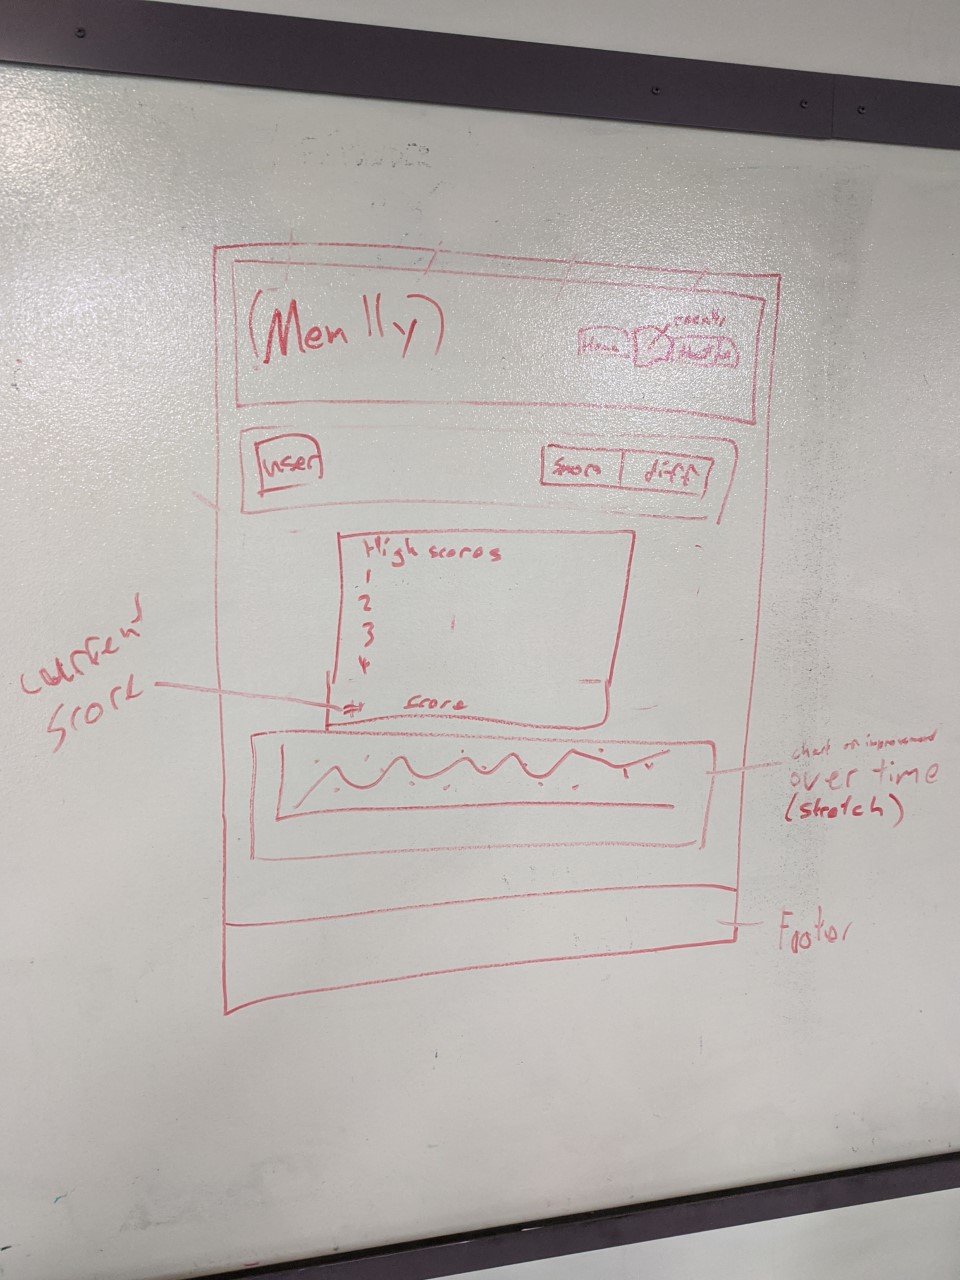 (Mem lly)
results
Home
user
Score diff
High scores
1
2
3
4
# score
current
score
chart of improvement
over time
(stretch)
Footer